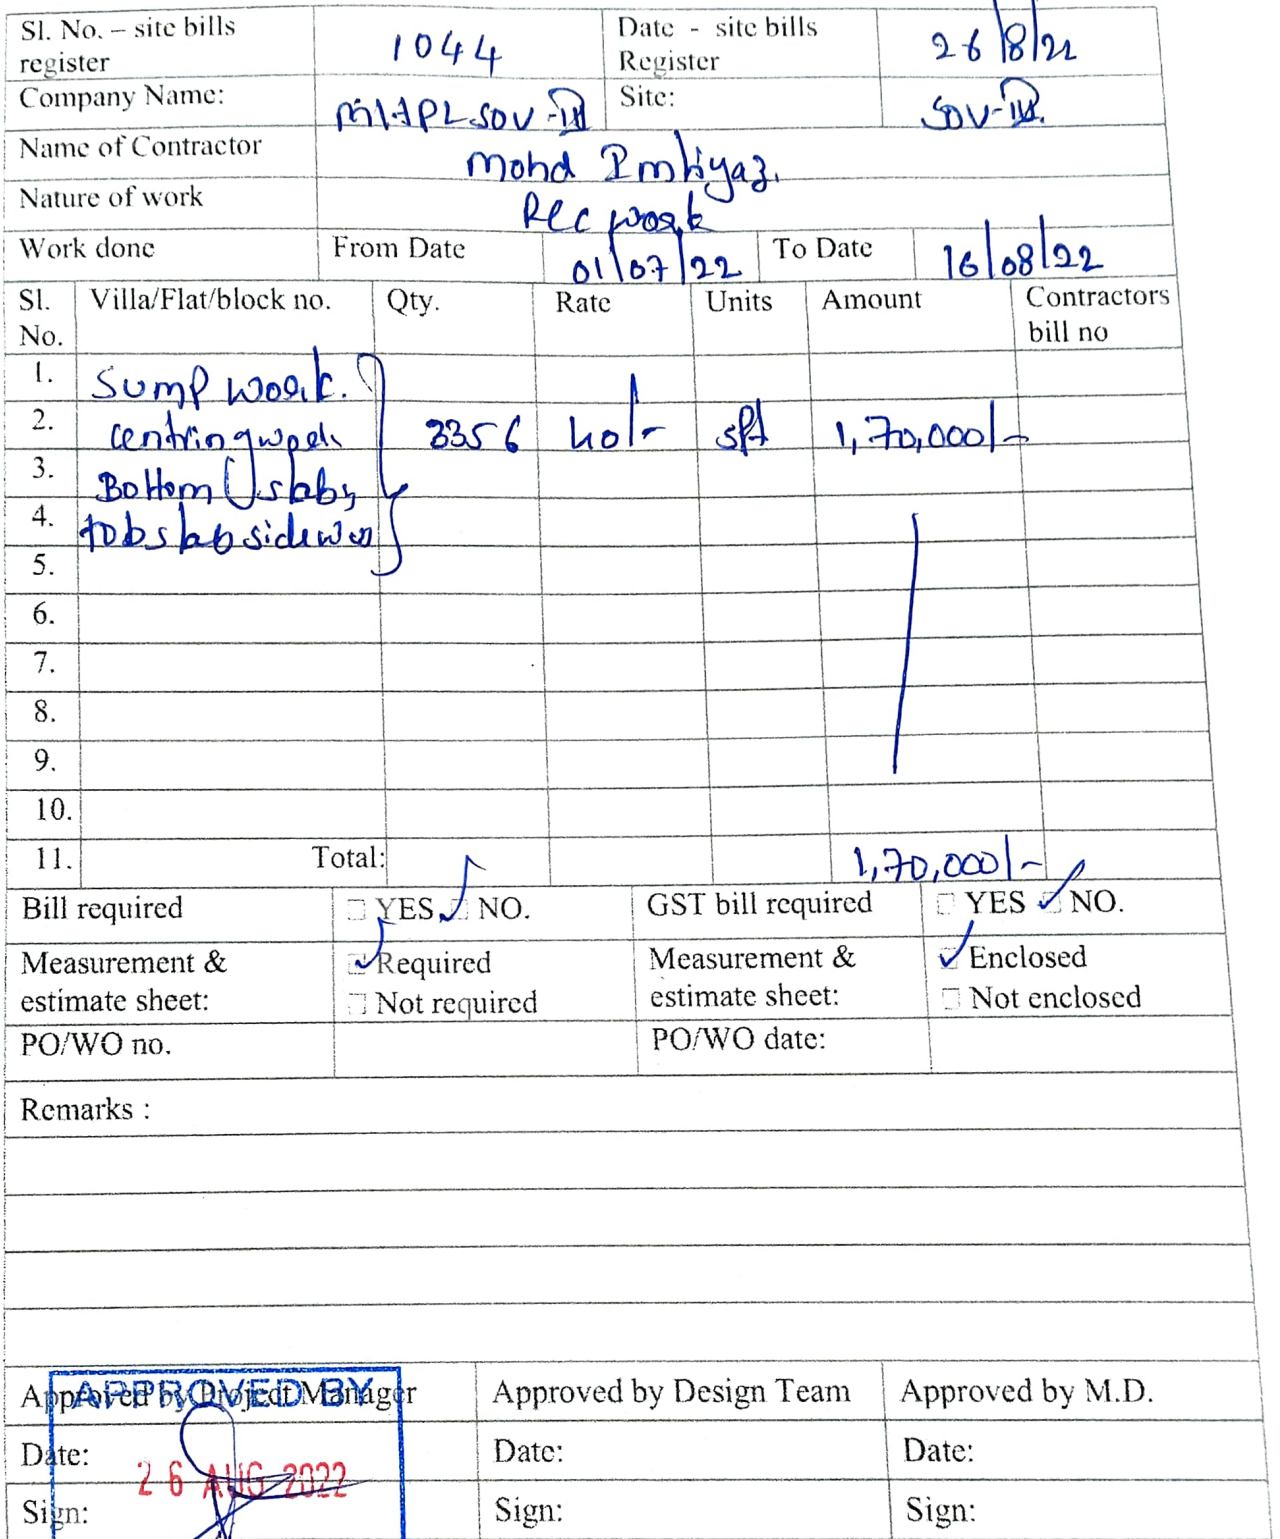 Sl. No. – site bills register 1044 Date - site bills Register 26/8/22
Company Name: SOV-III Site: SOV-III.
Name of Contractor Mohd Imtiyaz.
Nature of work Rcc work
Work done From Date 01/07/22 To Date 16/08/22
Sl. No. Villa/Flat/block no. Qty. Rate Units Amount Contractors bill no
1. Sump work.
2. centring work 3356 sft 1,70,000/-
3. Bottom slab,
4. slab side
5.
6.
7.
8.
9.
10.
11. Total: 1,70,000/-
Bill required YES NO. GST bill required YES NO.
Measurement & estimate sheet: Required Measurement & estimate sheet: Enclosed
Not required Not enclosed
PO/WO no. PO/WO date:
Remarks :
Approved by Project Manager Approved by Design Team Approved by M.D.
APPROVED BY
Date: 26 AUG 2022 Date: Date:
Sign: Sign: Sign: